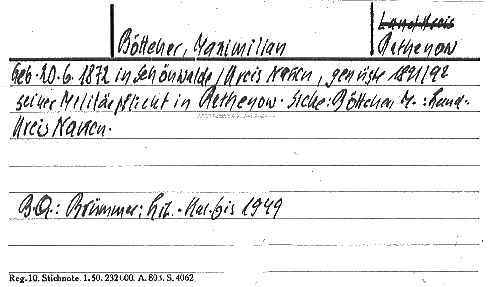 Landkreis
Böttcher, Maximilian Rathenow
Geb. 20.6.1872 in Schönwalde/Kreis Nauen, genügte 1891/92
seiner Militärpflicht in Rathenow. Siehe: Böttcher M.: Land-
kreis Nauen.
B.Q.: Brümmer; Lit. - Kal. bis 1949
Reg. 10. Stichnote. 1. 50. 232000. A. 803. S. 4062